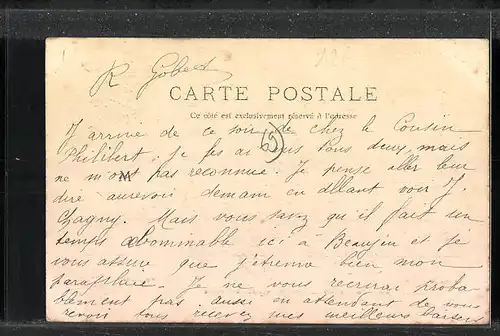 R Gobert
CARTE POSTALE
Ce côté est exclusivement réservé à l'adresse
J'arrive de ce soir de chez le Cousin
Philibert. Je les ai vus tous deux, mais
ne m'ont pas reconnue. Je pense aller leur
dire aurevoir demain en allant voir J.
Chagny. Mais vous savez qu'il fait un
temps abommable ici à Beaujeu et je
vous assure que j'étrenne bien mon
parapluie. Je ne vous recrirai proba-
blement pas aussi en attendant de vous
revoir tous recevez mes meilleurs baisers